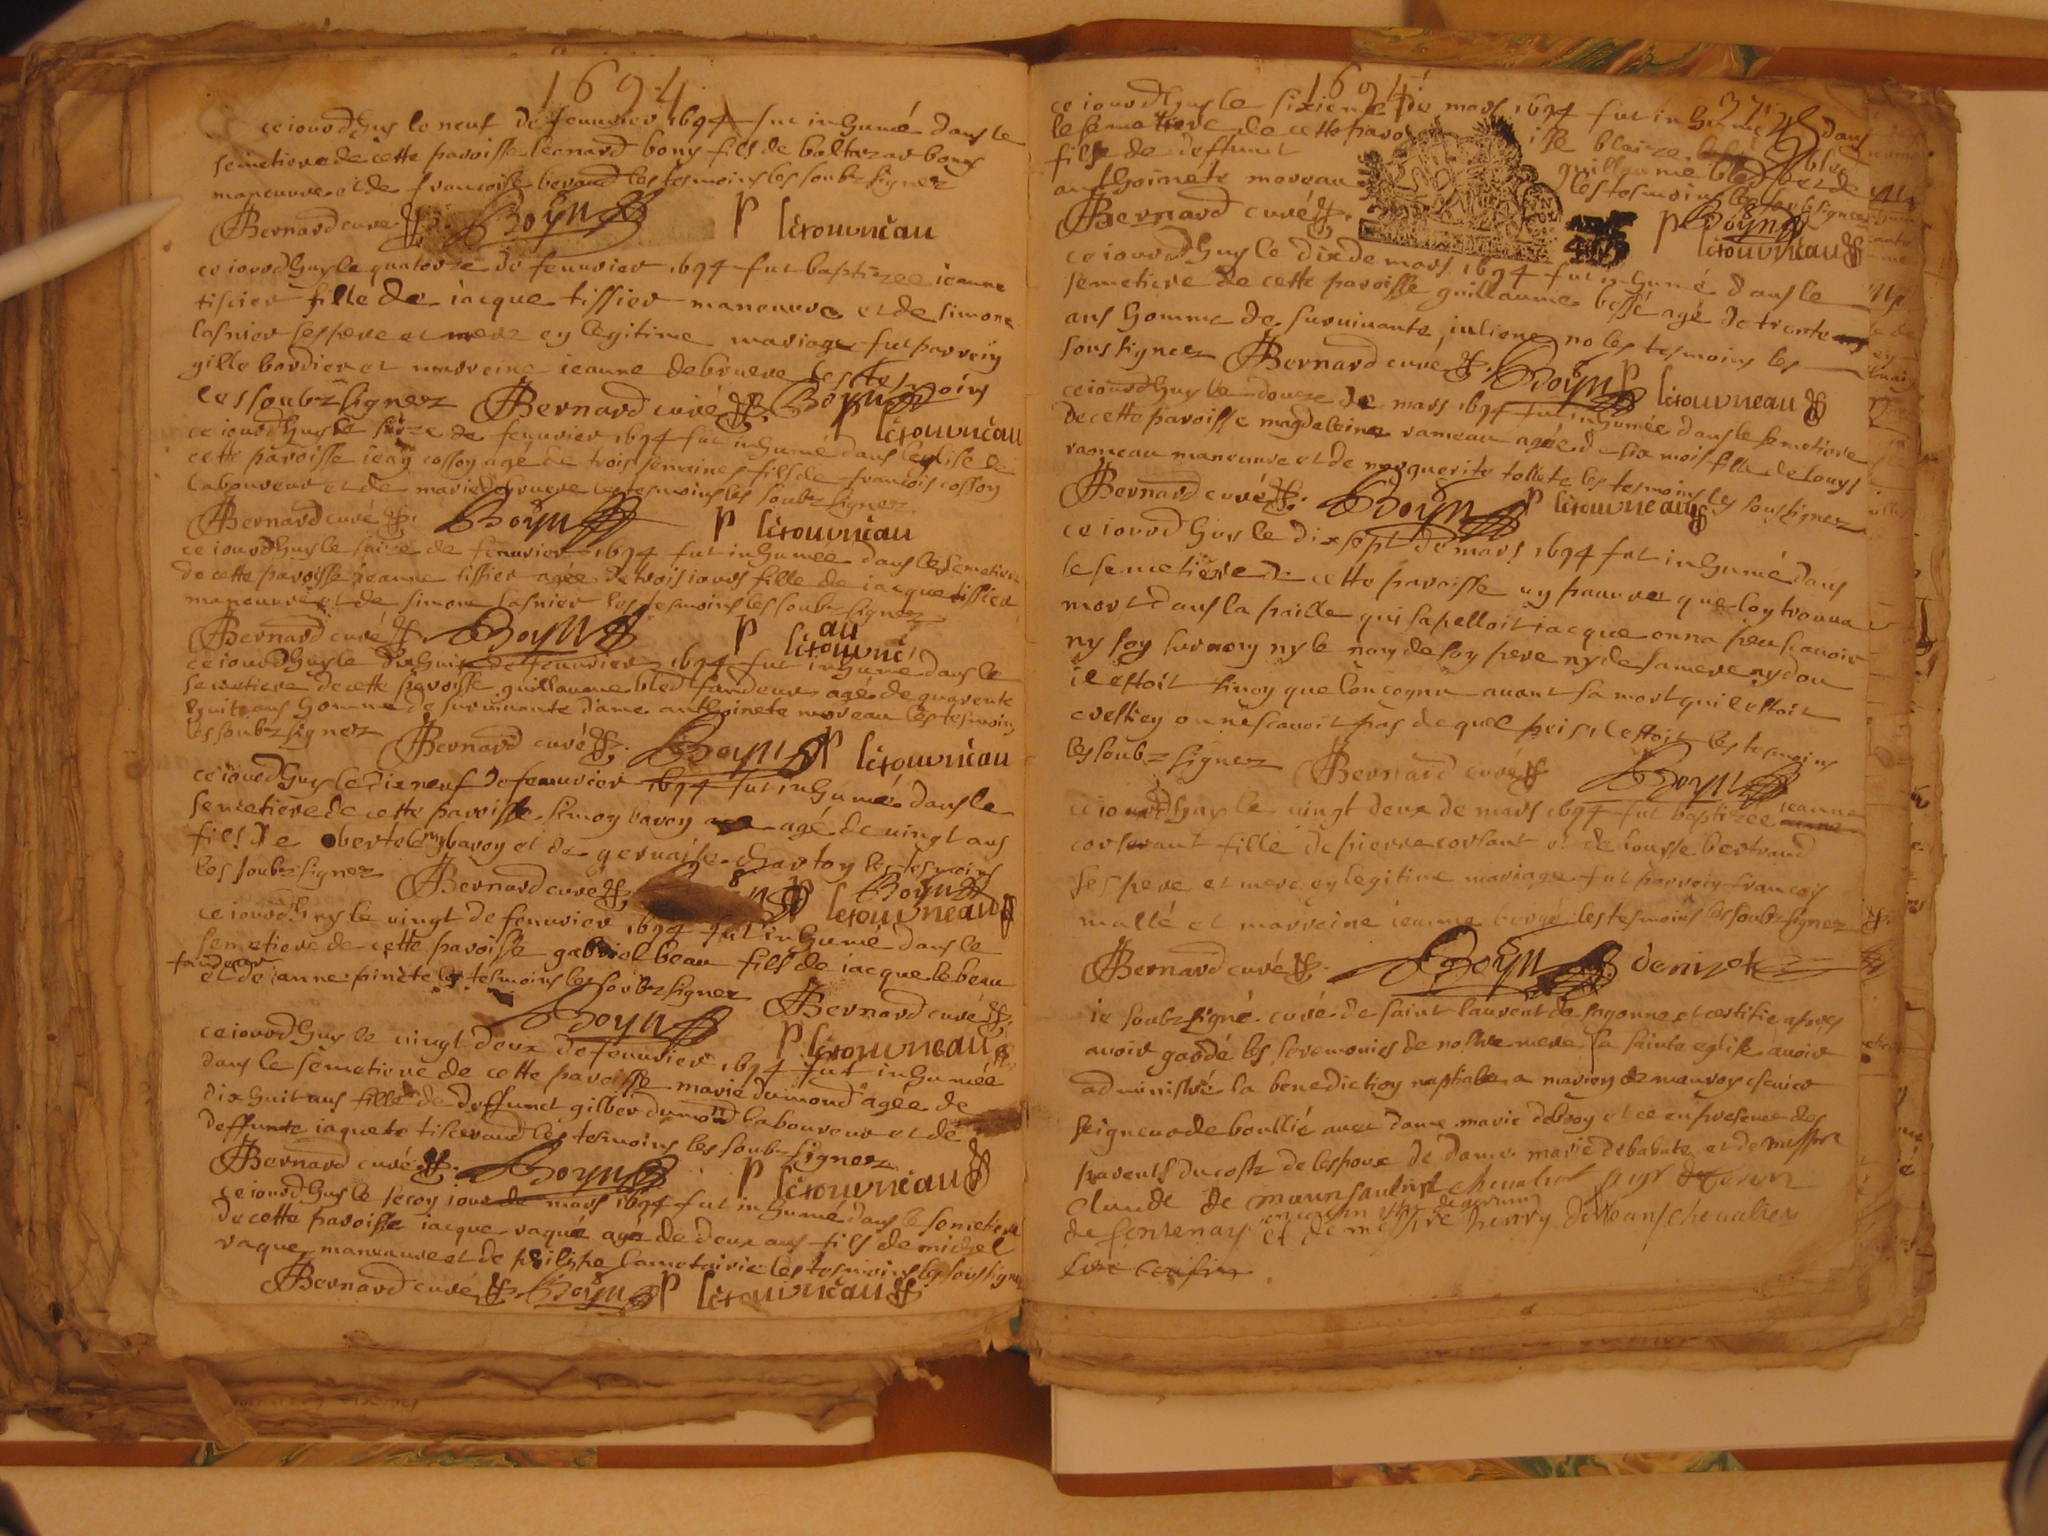 1694
ce iourdhuy le neuf de feuurier 1694 fut inhumé dans le
semetiere de cette paroisse leonard bony fils de baltazar bony
maneuvre et de francoise beraud les tesmoins les soubz signez
Bernard curé Boyn P letourneau
ce iourdhuy le quatorze de feuurier 1694 fut baptizee ieanne
tissier fille de iacque tissier maneuvre et de simone
lasnier ses pere et mere en legitime mariage fut parrein
gille bardier et marreine ieanne debruere les tesmoins
les soubz signez Bernard curé Boyn
P letourneau
ce iourdhuy le seize de feuurier 1694 fut inhumé dans leglise de
cette paroisse iean cosson agé de trois semaines fils de francois cosson
laboureur et de marie debruere les tesmoins les soubz signez
Bernard curé Boyn P letourneau
ce iourdhuy le seize de feuurier 1694 fut inhumee dans le semetiere
de cette paroisse ieanne tissier agée de trois iours fille de iacque tissier
maneuvre et de simone lasnier les tesmoins les soubz signez
Bernard curé Boyn P letourneau
ce iourdhuy le dixhuit de feuurier 1694 fut inhumé dans le
semetiere de cette paroisse guillaume bled fandeur agé de quarente
huit ans homme de suruiuante dame anthoinete moreau les tesmoins
les soubz signez Bernard curé Boyn P letourneau
ce iourdhuy le dixneuf de feuurier 1694 fut inhumé dans le
semetiere de cette paroisse simon bavoy agé de uingt ans
fils de bertelemy bavoy et de geruaise charton les tesmoins
les soubz signez Bernard curé Boyn
P letourneau
ce iourdhuy le uingt de feuurier 1694 fut inhumé dans le
semetiere de cette paroisse gabriel beau fils de iacque lebeau
fandeur
et de anne pinete les tesmoins les soubz signez
Boyn Bernard curé
P letourneau
ce iourdhuy le uingt deux de feuurier 1694 fut inhumée
dans le semetiere de cette paroisse marie dumond agée de
dix huit ans fille de deffunct gilber dumond laboureur et de
deffunte iaquete tisserand les tesmoins les soubz signez
Bernard curé Boyn P letourneau
ce iourdhuy le secon iour de mars 1694 fut inhumé dans le semetiere
de cette paroisse iacque vaque agé de deux ans fils de michel
vaque maneuure et de philipe lametairie les tesmoins les sous signez
Bernard curé Boyn P letourneau
1694 37
ce iourdhuy le sixieme de mars 1694 fut inhumé dans
le semetiere de cette paroisse blaize bled
fils de deffunct guillaume bled et de
anthoinete moreau les tesmoins les soubz signez
Bernard curé P Boyn
letourneau
ce iourdhuy le dix de mars 1694 fut inhumé dans le
semetiere de cette paroisse guillaume bessé agé de trente
ans homme de suruiuante iuliene no les tesmoins les
sous signez Bernard curé Boyn P letourneau
ce iourdhuy le douze de mars 1694 fut inhumée dans le semetiere
de cette paroisse magdeleine rameau agée de six mois fille de louys
rameau maneuure et de marguerite tollete les tesmoins les sous signez
Bernard curé Boyn P letourneau
ce iourdhuy le dix sept de mars 1694 fut inhumé dans
le semetiere de cette paroisse un pauure que lon trouua
mort dans la paille qui sapelloit iacque on na peu scauoir
ny son surnom ny le nom de son pere ny de sa mere ny dou
il estoit sinon que lon cognu auant sa mort quil estoit
crestien on ne scauoit pas de quel peis il estoit les tesmoins
les soubz signez Bernard curé Boyn
ce iourdhuy le uingt deux de mars 1694 fut baptizee ieanne
corsant fille de pierre corsant et de louyse bertrand
ses pere et mere en legitime mariage fut parrein francois
mallé et marreine ieanne les tesmoins les soubz signez
Bernard curé Boyn denizet
ie soubz signé curé de saint laurent de sagonne et certifie apres
auoir gardé les seremonies de nostre mere la sainte eglise auoir
administré la benediction naptiale a marien de mauvoy escuier
seigneur de boullié auec dame marie et ce en presence des
parents du coste de lespoux de dame marie debabute et de messire
claude de chevalier sgr
de fontenay et de messire henry chevalier